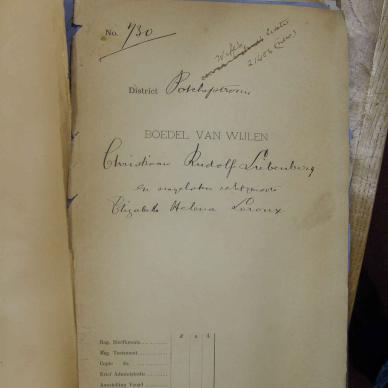 No. 730
District Potchefstroom
BOEDEL VAN WIJLEN
Christiaan Rudolf Liebenberg
en nagelaten echtgenoote
Elizabeth Helena Leroux
£ s d
Reg. Sterfkennis
Mag. Testament
Copie do.
Brief Administratie
Aanstelling Voogd